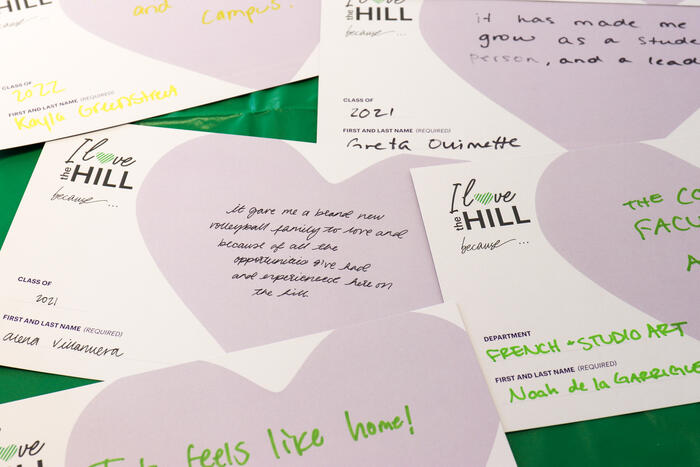 HILL
because...
and campus!
CLASS OF
2022
FIRST AND LAST NAME (REQUIRED)
Kayla Greenstreet
the HILL
because...
it has made me
grow as a stude
person, and a lead
CLASS OF
2021
FIRST AND LAST NAME (REQUIRED)
Greta Ouimette
I love
the HILL
because...
It gave me a brand new
volleyball family to love and
because of all the
opportunities I've had
and experienced here on
the hill.
CLASS OF
2021
FIRST AND LAST NAME (REQUIRED)
Alena Villanueva
I love
the HILL
because...
THE CO
FACU
A
DEPARTMENT
FRENCH + STUDIO ART
FIRST AND LAST NAME (REQUIRED)
Noah de la GARRIGUE
I love
HILL
feels like home!